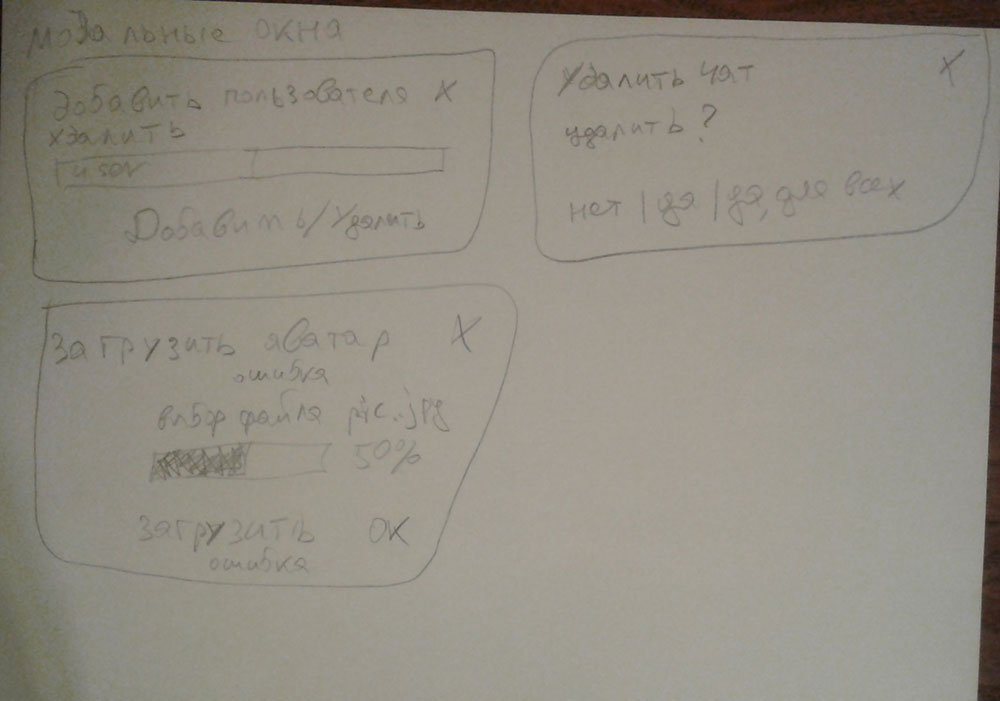 модальные окна
Добавить пользователя X
удалить
user
Добавить/Удалить
Удалить чат X
удалить?
нет | да | да, для всех
Загрузить аватар X
ошибка
выбор файла pic.jpg
50%
загрузить ОК
ошибка